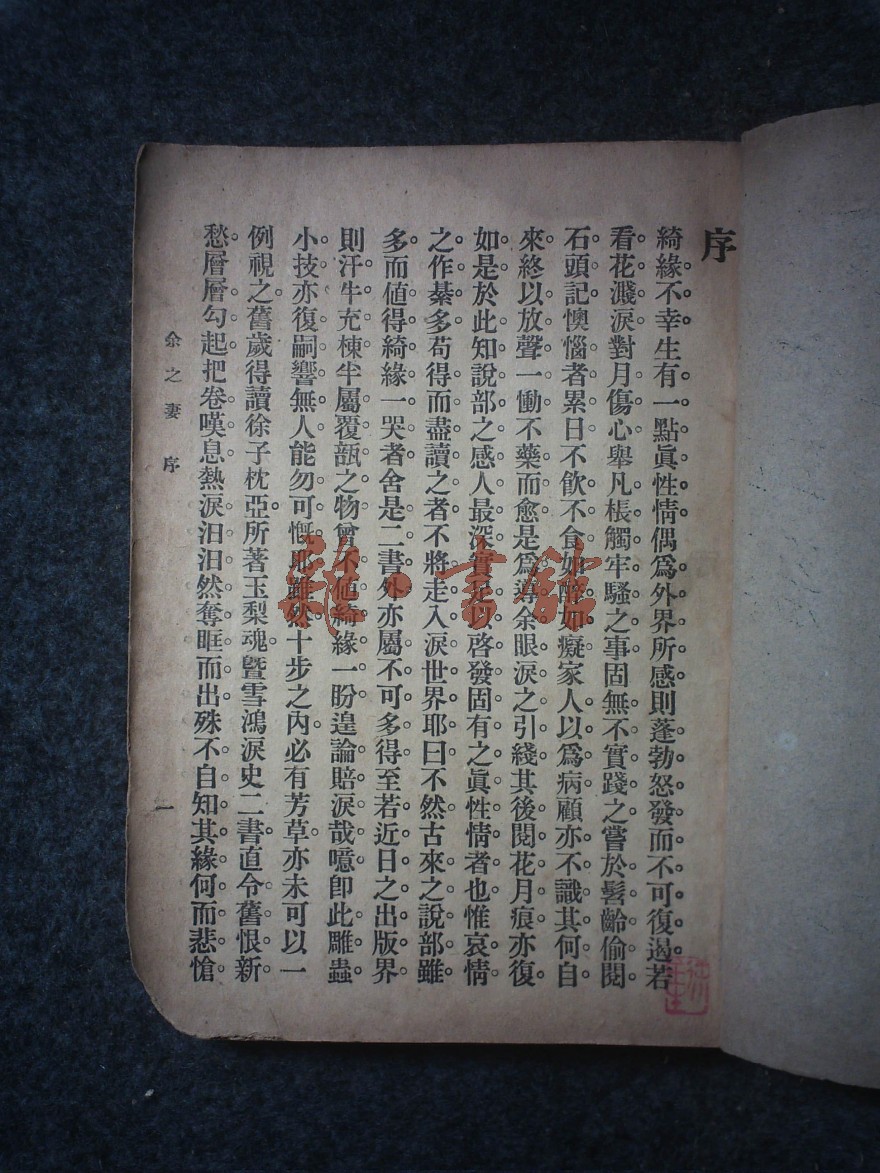 序
綺緣不幸生有一點眞性情偶爲外界所感則蓬勃怒發而不可復遏若
看花濺淚對月傷心舉凡棖觸牢騷之事固無不實踐之嘗於髫齡偷閱
石頭記懊惱者累日不飲不食如醉如癡家人以爲病顧亦不識其何自
來終以放聲一慟不藥而愈是爲導余眼淚之引綫其後閱花月痕亦復
如是於此知說部之感人最深實足以啓發固有之眞性情者也惟哀情
之作綦多苟得而盡讀之者不將走入淚世界耶曰不然古來之說部雖
多而値得綺緣一哭者舍是二書外亦屬不可多得至若近日之出版界
則汗牛充棟半屬覆瓿之物曾不值綺緣一盼遑論賠淚哉噫卽此雕蟲
小技亦復嗣響無人能勿可慨耶雖然十步之內必有芳草亦未可以一
例視之舊歲得讀徐子枕亞所著玉梨魂曁雪鴻淚史二書直令舊恨新
愁層層勾起把卷嘆息熱淚汩汩然奪眶而出殊不自知其緣何而悲愴
余之妻 序
一